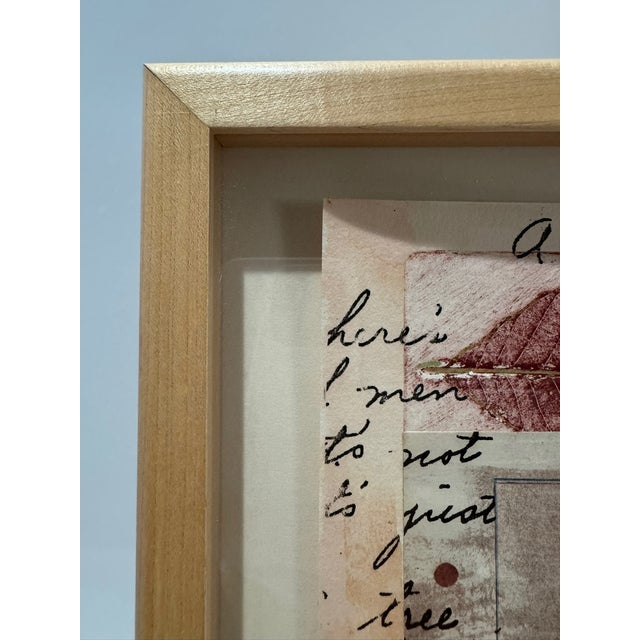 a
here's
men
to not
is just
tree